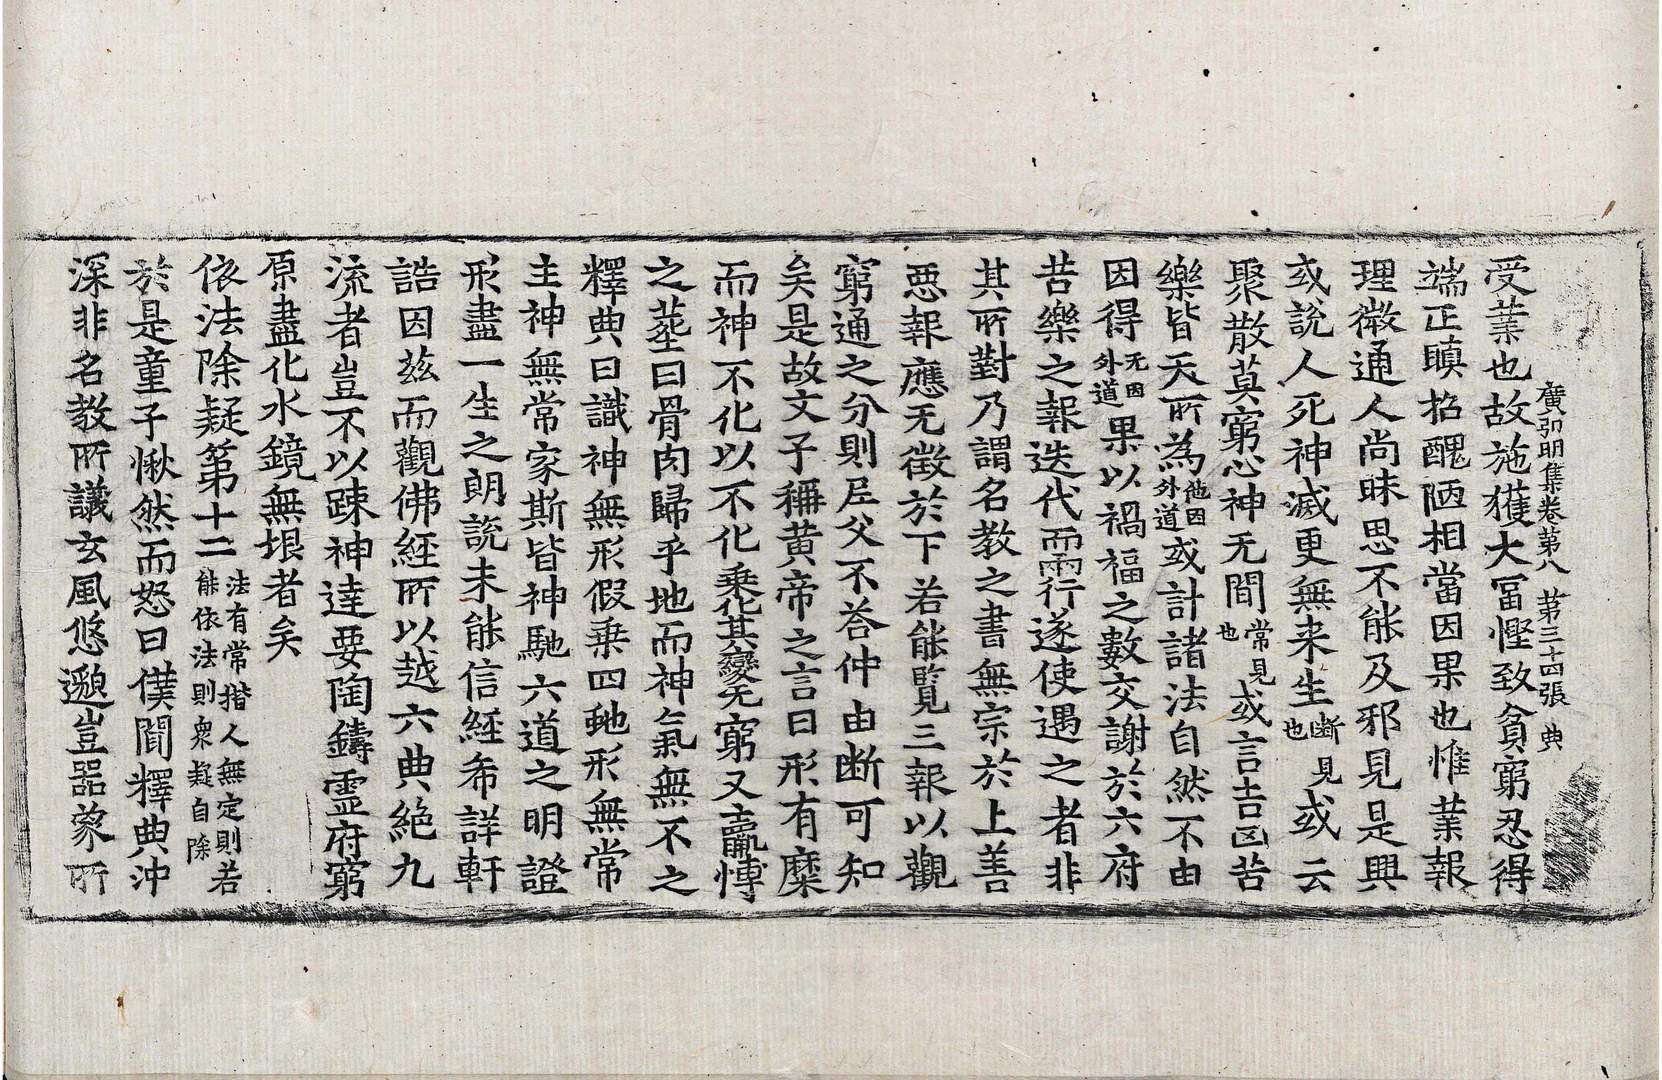 廣弘明集卷第八　第三十四張　典
受業也故施獲大冨慳致貧窮忍得
端正瞋招醜陋相當因果也惟業報
理微通人尚昧思不能及邪見是興
或說人死神滅更無来生斷見也或云
聚散莫窮心神无間常見也或言吉凶苦
樂皆天所為他因外道或計諸法自然不由
因得无因外道果以禍福之數交謝於六府
苦樂之報迭代而兩行遂使遇之者非
其所對乃謂名教之書無宗於上善
惡報應无徵於下若能覧三報以觀
窮通之分則尼父不荅仲由断可知
矣是故文子稱黄帝之言曰形有糜
而神不化以不化乗化其變无窮又嬴愽
之葬曰骨肉歸乎地而神氣無不之
釋典曰識神無形假乗四虵形無常
主神無常家斯皆神馳六道之明證
形盡一生之朗說未能信經希詳軒
誥因茲而觀佛經所以越六典絕九
流者豈不以踈神達要陶鑄靈府窮
原盡化水鏡無垠者矣
依法除疑第十二法有常揩人無定則若能依法則衆疑自除
於是童子愀然而怒曰僕聞釋典沖
深非名教所議玄風悠邈豈器𫎇所